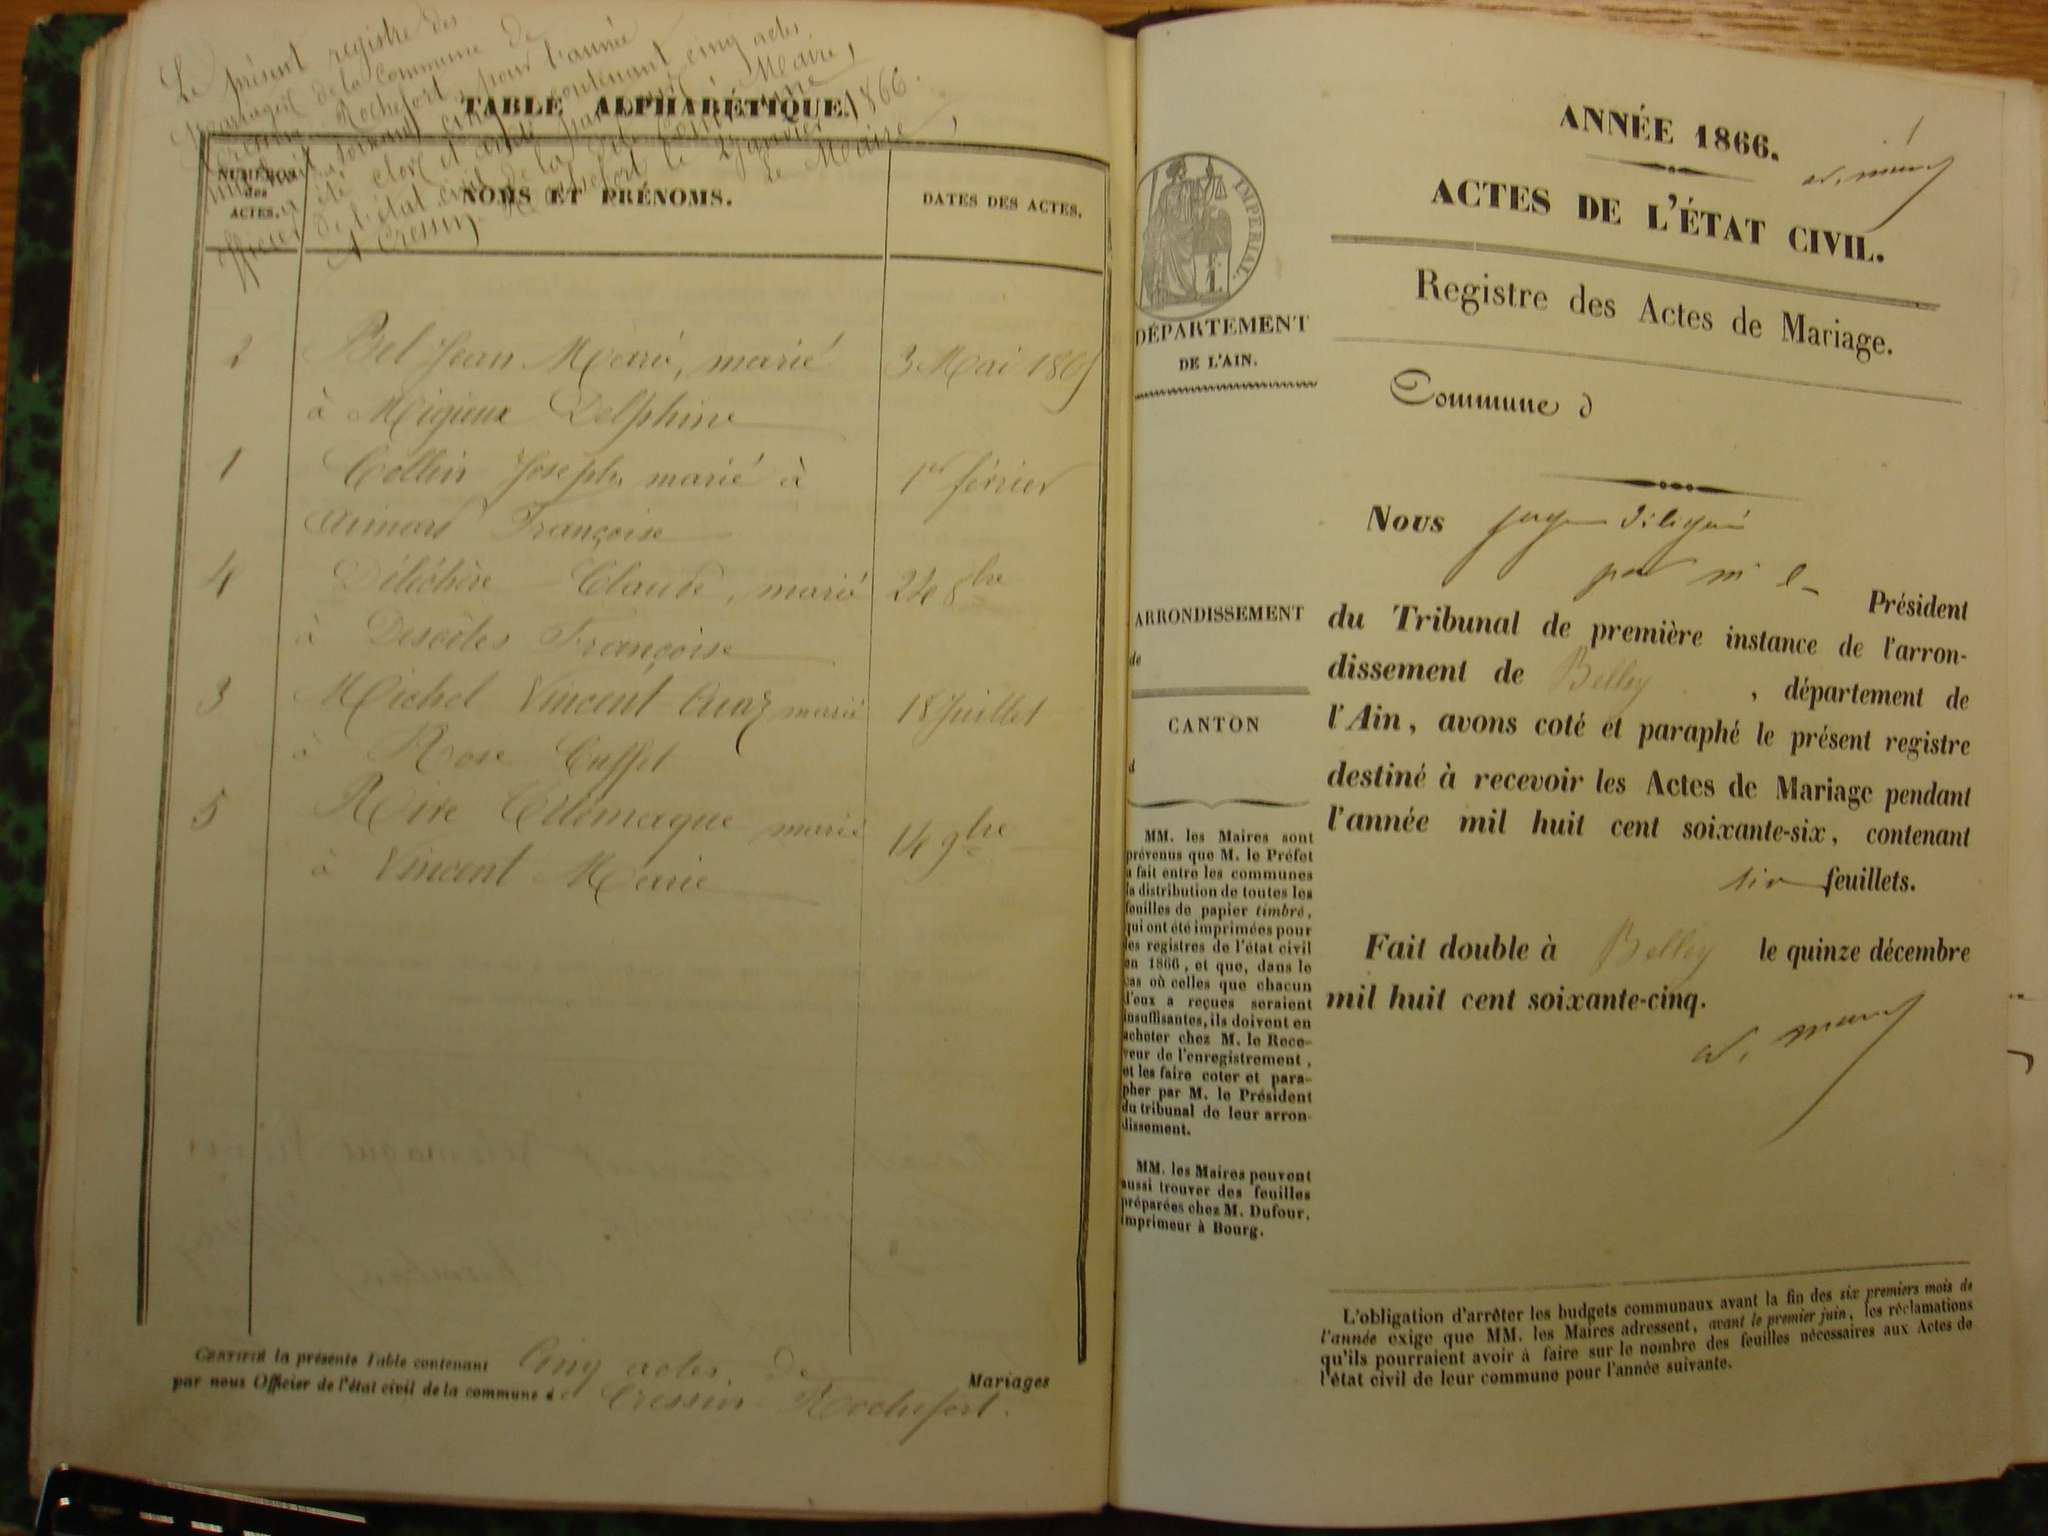 Le présent registre des
Mariages de la Commune de
Cressin Rochefort, pour l'année
mil huit cent soixante cinq contenant cinq actes
a été clos et arrêté par nous Maire,
officier de l'état civil de la dite Commune
A Cressin Rochefort le 2 janvier 1866.
Le Maire,
TABLE ALPHABÉTIQUE.
NUMÉROS
des
ACTES.
NOMS ET PRÉNOMS.
DATES DES ACTES.
2 Bel Jean Marie, marié 3 Mai 1865
à Migieux Delphine
1 Collin Joseph, marié à 1er février
Aimard Françoise
4 Claude, marié 24 8bre
à Descôtes Françoise
3 Michel Vincent Cuaz marié 18 Juillet
à Rose Cuffet
5 Rive Télémaque marié 14 9bre
à Vincent Marie
CERTIFIÉ la présente Table contenant Cinq actes de Mariages
par nous Officier de l'état civil de la commune d Cressin Rochefort.
ANNÉE 1866.
1
ACTES DE L'ÉTAT CIVIL.
Registre des Actes de Mariage.
IMPÉRIAL.
DÉPARTEMENT
DE L'AIN.
Commune d
Nous juge délégué
par mr le Président
du Tribunal de première instance de l'arron-
dissement de Belley, département de
l'Ain, avons coté et paraphé le présent registre
destiné à recevoir les Actes de Mariage pendant
l'année mil huit cent soixante-six, contenant
six feuillets.
Fait double à Belley le quinze décembre
mil huit cent soixante-cinq.
ARRONDISSEMENT
de
CANTON
d
MM. les Maires sont
prévenus que M. le Préfet
a fait entre les communes
la distribution de toutes les
feuilles de papier timbré,
qui ont été imprimées pour
les registres de l'état civil
en 1866, et que, dans le
cas où celles que chacun
d'eux a reçues seraient
insuffisantes, ils doivent en
acheter chez M. le Rece-
veur de l'enregistrement,
et les faire coter et para-
pher par M. le Président
du tribunal de leur arron-
dissement.
MM. les Maires peuvent
aussi trouver des feuilles
préparées chez M. Dufour,
imprimeur à Bourg.
L'obligation d'arrêter les budgets communaux avant la fin des six premiers mois de
l'année exige que MM. les Maires adressent, avant le premier juin, les réclamations
qu'ils pourraient avoir à faire sur le nombre des feuilles nécessaires aux Actes de
l'état civil de leur commune pour l'année suivante.